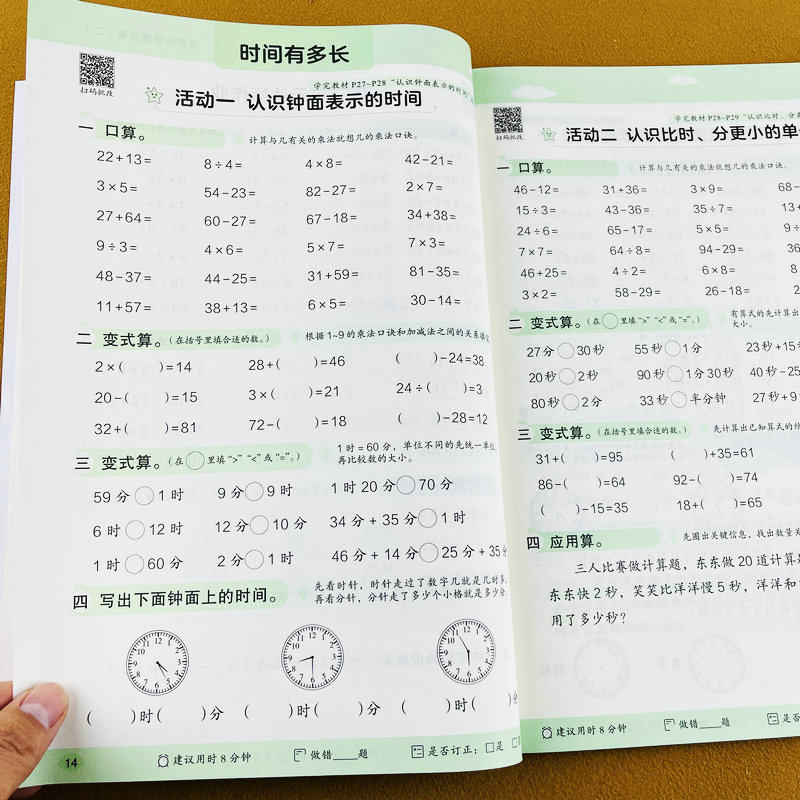 时间有多长
扫码批改
学完教材 P27~P28“认识钟面表示的时间”
活动一 认识钟面表示的时间
一 口算。 计算与几有关的乘法就想几的乘法口诀。
22+13= 8÷4= 4×8= 42-21=
3×5= 54-23= 82-27= 2×7=
27+64= 60-27= 67-18= 34+38=
9÷3= 4×6= 5×7= 7×3=
48-37= 44-25= 31+59= 81-35=
11+57= 38+13= 6×5= 30-14=
二 变式算。(在括号里填合适的数。) 根据 1~9 的乘法口诀和加减法之间的关系填
2×( )=14 28+( )=46 ( )-24=38
20-( )=15 3×( )=21 24÷( )=3
32+( )=81 72-( )=18 ( )-28=12
三 变式算。(在○里填“>”“<”或“=”。) 1时=60分，单位不同的先统一单位，
再比较数的大小。
59分○1时 9分○9时 1时20分○70分
6时○12时 12分○10分 34分+35分○1时
1时○60分 2分○1时 46分+14分○25分+35分
四 写出下面钟面上的时间。 先看时针，时针走过了数字几就是几时多，
再看分针，分针走了多少个小格就是多少分。
( )时( )分 ( )时( )分 ( )时( )分
14 建议用时8分钟 做错____题 是否订正：□是
扫码批改
学完教材 P28~P29“认识比时、分
活动二 认识比时、分更小的单
一 口算。 计算与几有关的乘法就想几的乘法口诀。
46-12= 31+36= 3×9= 68-
15÷3= 43-36= 35÷7= 13+
24÷6= 65-17= 5×5= 9÷
7×7= 64÷8= 94-29= 36
46+25= 4÷2= 6×8= 8
3×2= 58-29= 26-18= 2
二 变式算。(在○里填“>”“<”或“=”。) 有算式的先计算出
大小。
27分○30秒 55秒○1分 23秒+15
20秒○2秒 90秒○1分30秒 40秒-25
80秒○2分 33秒○半分钟 27秒+9
三 变式算。(在括号里填合适的数。) 先计算出已知算式的
31+( )=95 ( )+35=61
86-( )=64 92-( )=74
( )-15=35 18+( )=65
四 应用算。 先圈出关键信息，找出数量关
三人比赛做计算题，东东做20道计算
东东快2秒，笑笑比洋洋慢5秒，洋洋和
用了多少秒？
建议用时8分钟 做错____题 是否